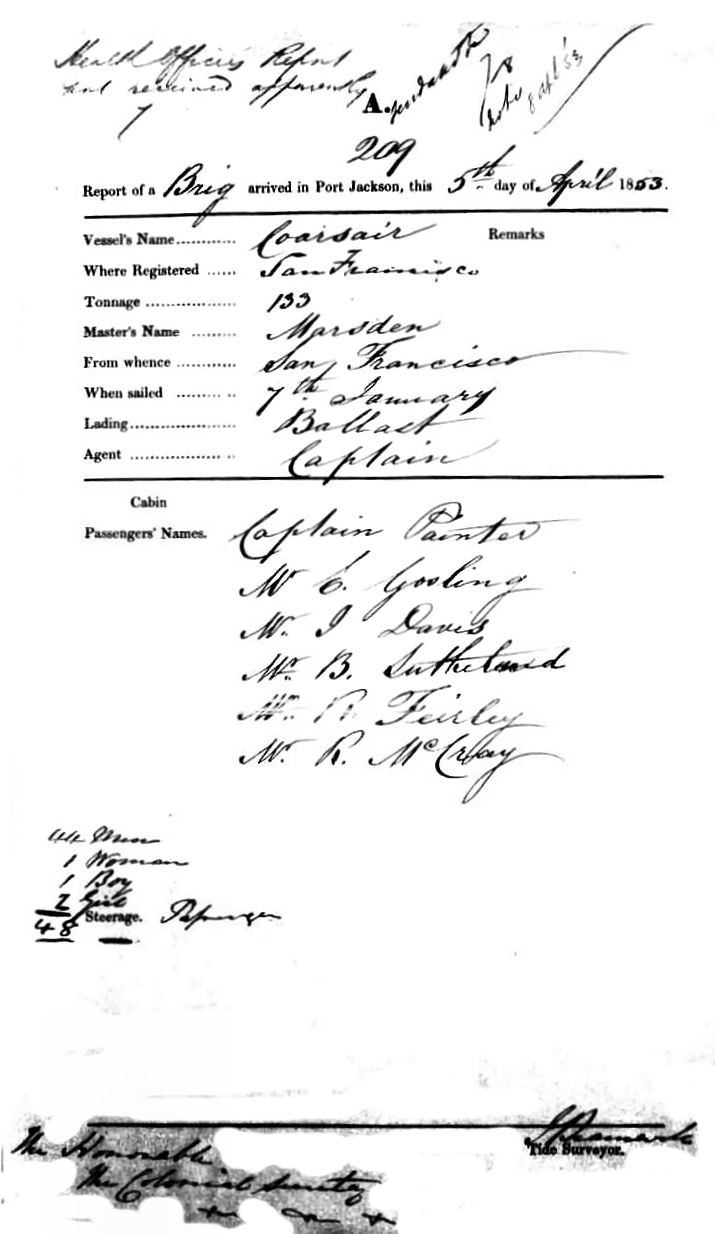 Health Officers Report
not received apparently
A.
209
Report of a Brig arrived in Port Jackson, this 5th day of April 1853.
Vessel's Name............ Coarsair Remarks
Where Registered ...... San Francisco
Tonnage .................. 133
Master's Name ......... Marsden
From whence ............ San Francisco
When sailed ......... .. 7th January
Lading..................... Ballast
Agent .................. .. Captain
Cabin
Passengers' Names. Captain Painter
Mr C. Gosling
Mr. J Davis
Mr. B. Sutherland
Mr. R. Feirley
Mr. R. McCray
44 Men
1 Woman
1 Boy
2 Girls
48 Steerage. Passenger
The Honorable
The Colonial Secretary
Tide Surveyor.